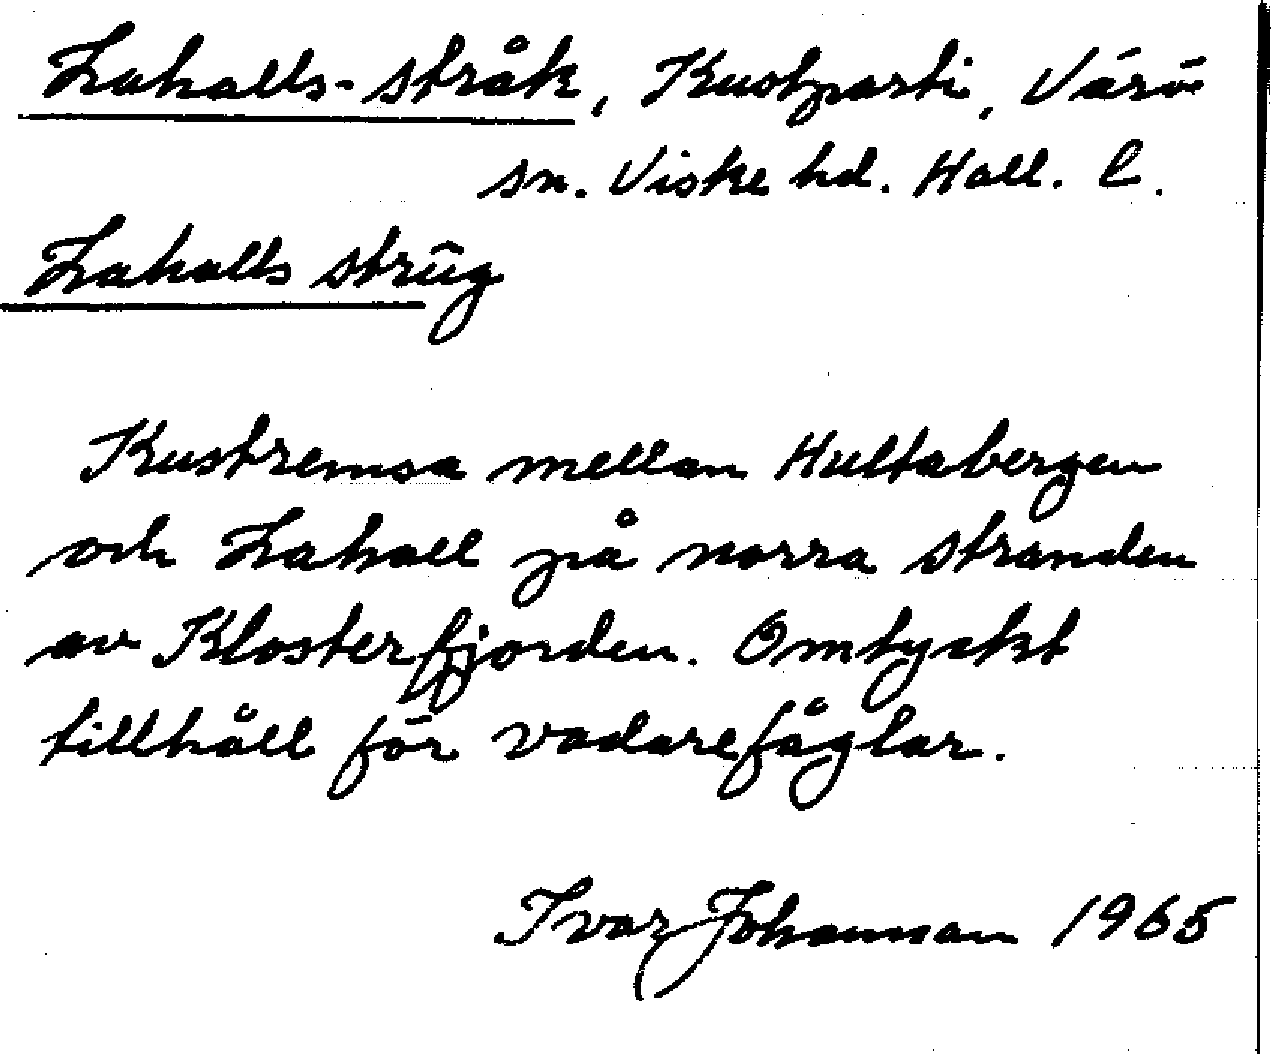 Lahalls-stråk, Kustparti, Värö
sn. Viske hd. Hall. l.
Lahalls strûg
Kustremsa mellan Hultabergen
och Lahall på norra stranden
av Klosterfjorden. Omtyckt
tillhåll för vadarefåglar.
Ivar Johansson 1965